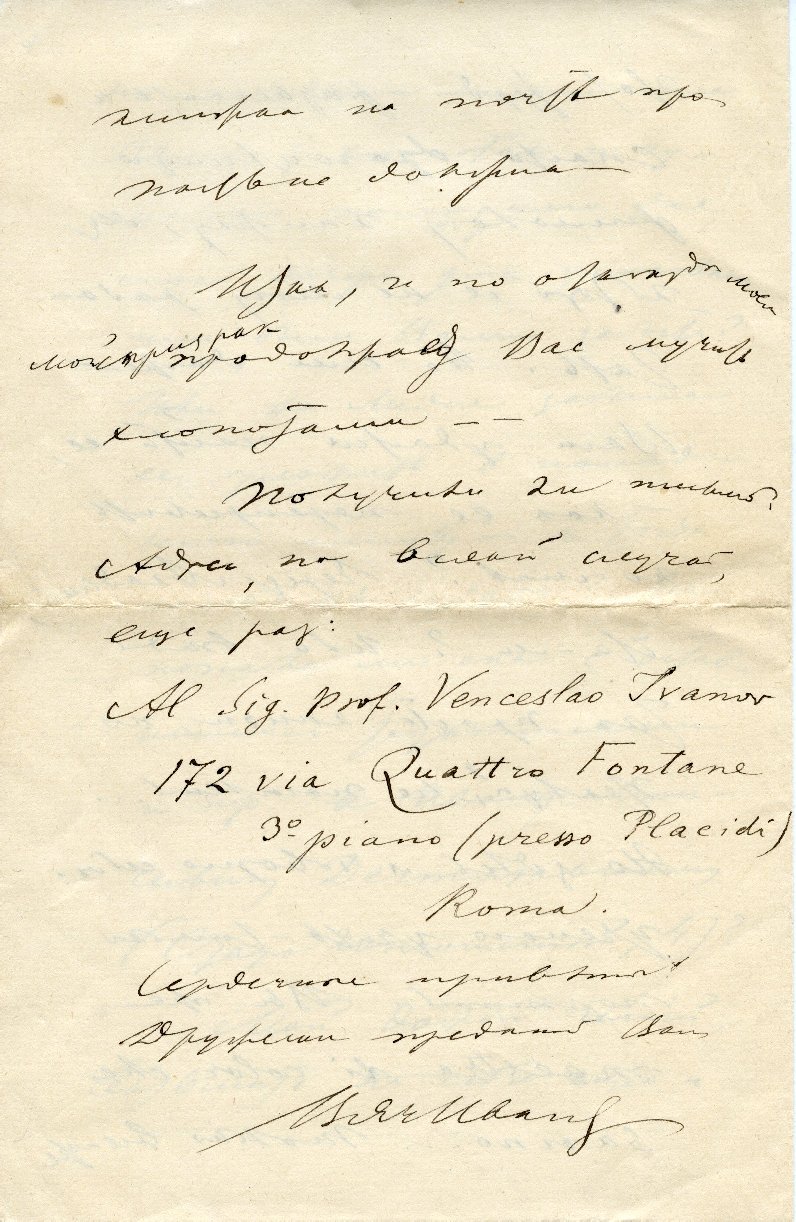 на почтѣ про
Итак, и по отъѣзде моем
мой призрак продолжает Вас мучить
хлопотами — —
Получили ли письмо?
Адрес, на всякий случай,
еще раз:
Al Sig. Prof. Venceslao Ivanov
172 via Quattro Fontane
3º piano (presso Placidi)
Roma.
Сердечные приветы
Дружески преданный Вам
Вяч Иванов